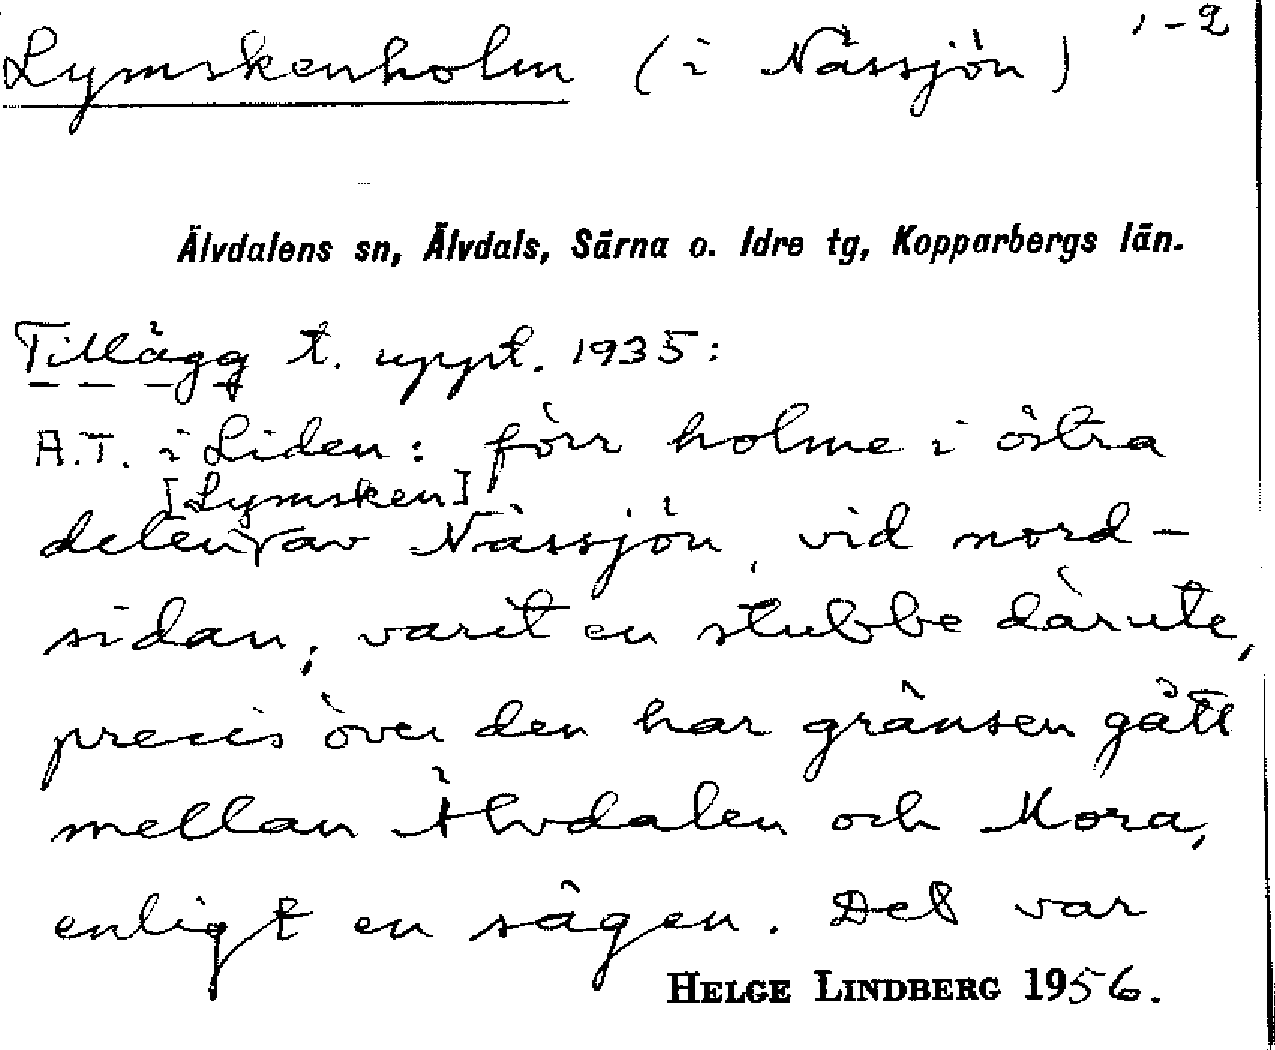 Lymskenholm (i Nässjön) 1-2
Älvdalens sn, Älvdals, Särna o. Idre tg, Kopparbergs län.
Tillägg t. uppt. 1935:
A.T. i Liden: förr holme i östra
[Lymsken]
delen av Nässjön, vid nord-
sidan, varit en stubbe därute,
precis över den har gränsen gått
mellan Älvdalen och Mora,
enligt en sägen. Det var
HELGE LINDBERG 1956.